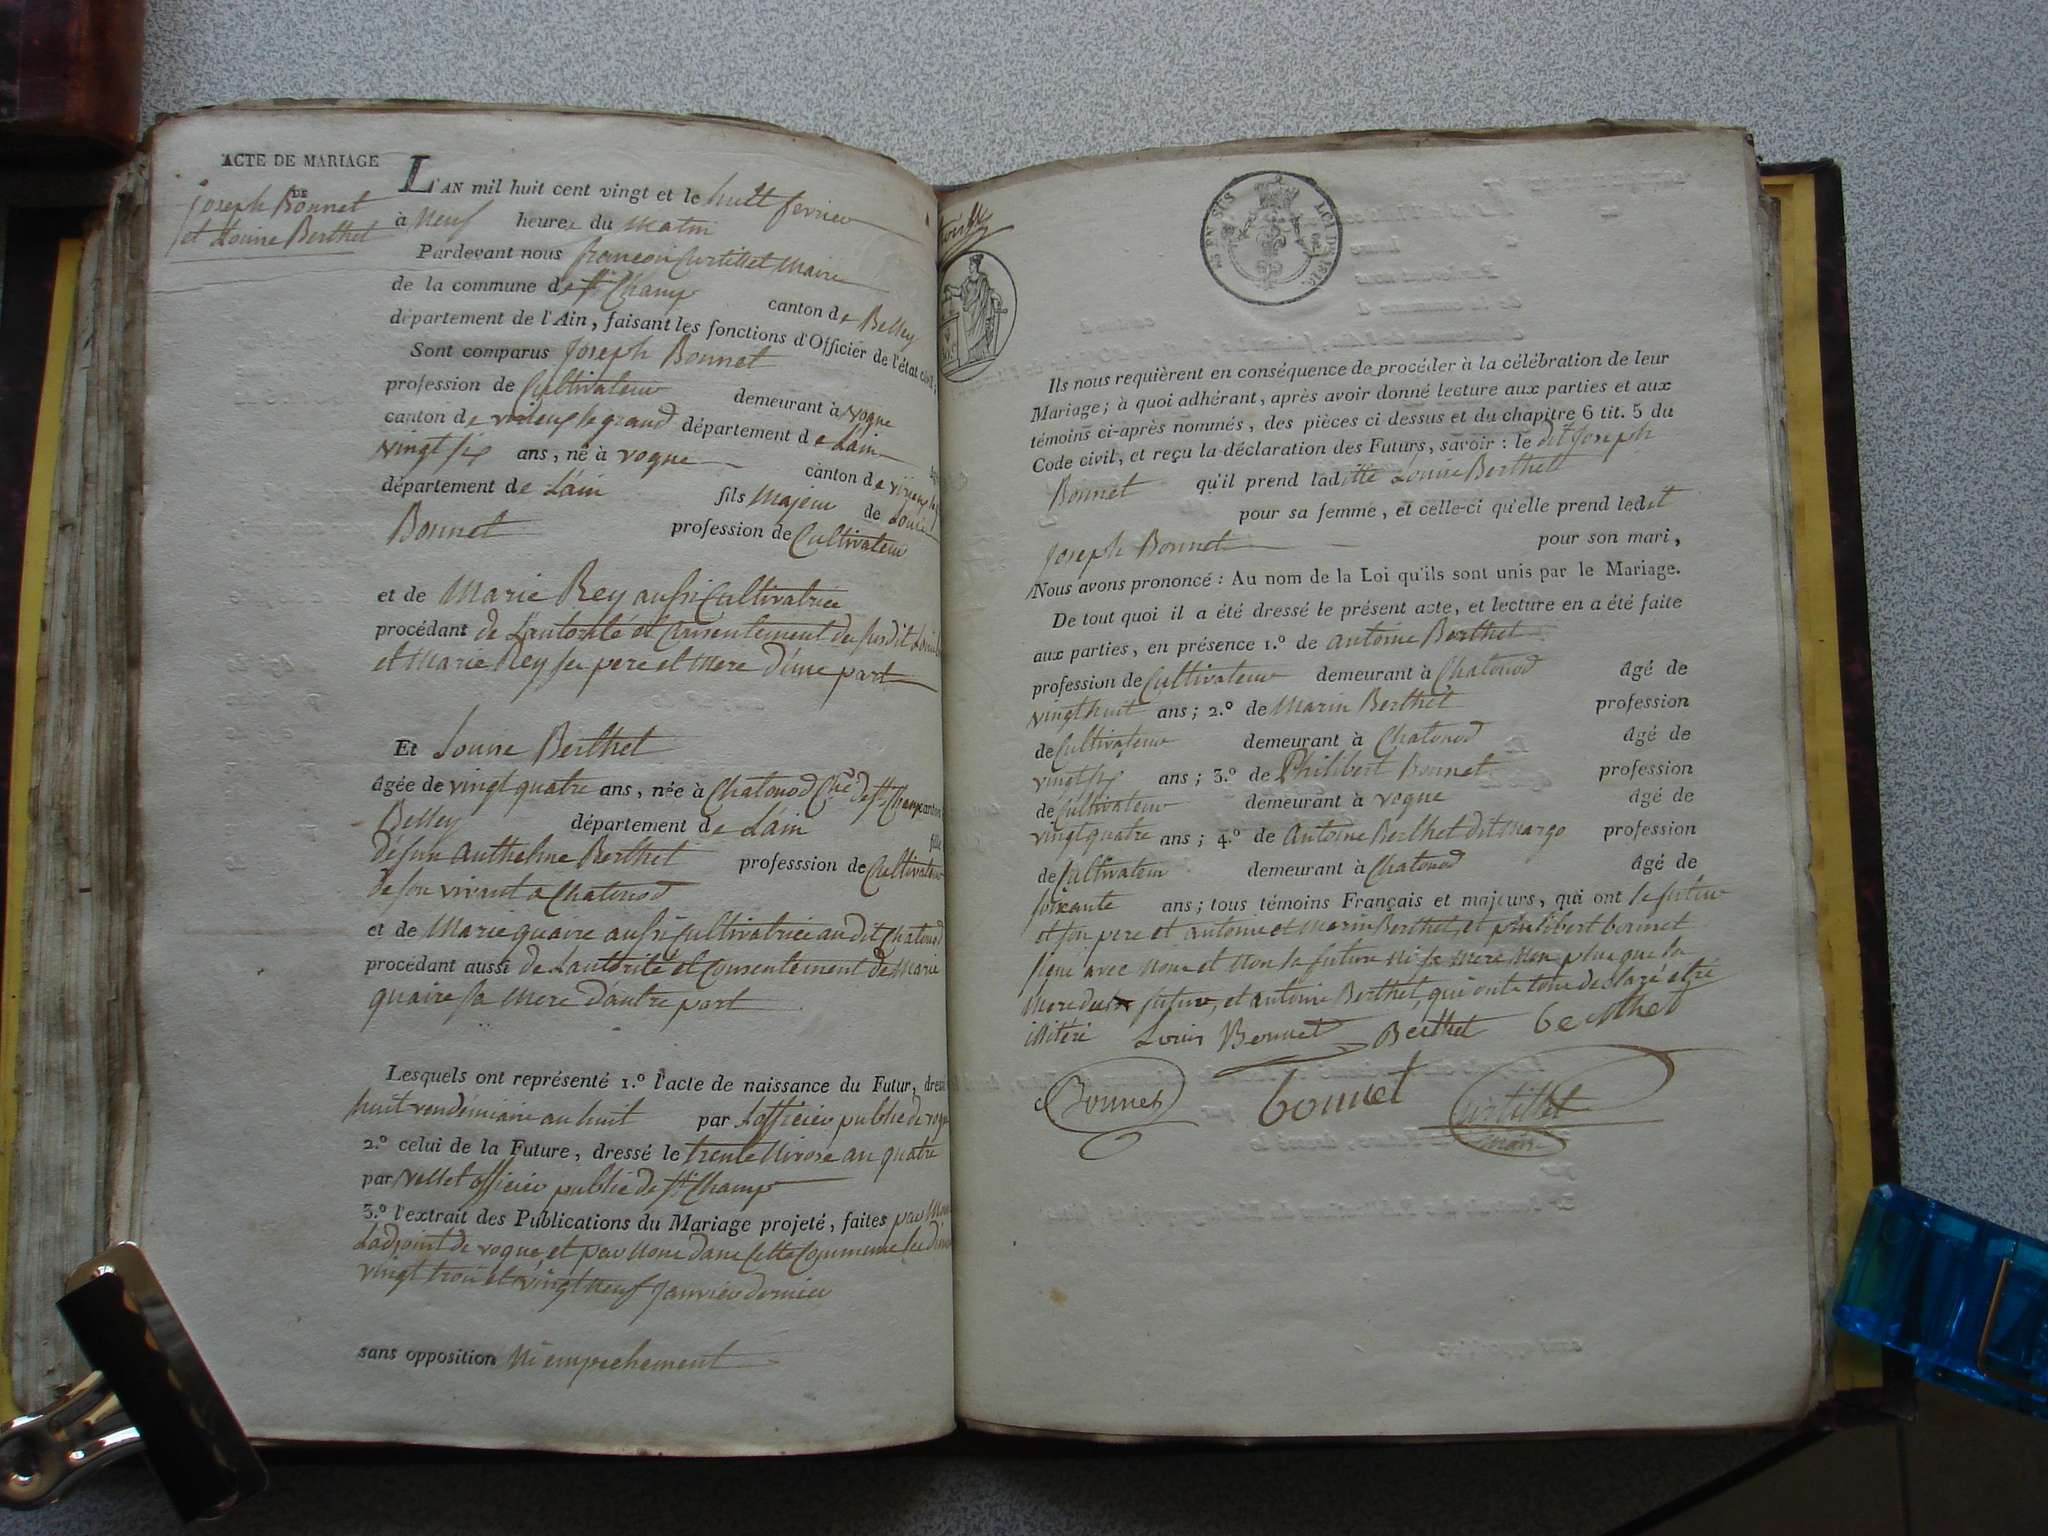 ACTE DE MARIAGE
DE
Joseph Bonnet
et Louise Berthet
L'AN mil huit cent vingt et le huit fevrier
à neuf heures du matin
Pardevant nous françois Curtillet Maire
de la commune de St Champ canton de Belley
département de l'Ain, faisant les fonctions d'Officier de l'état civil,
Sont comparus Joseph Bonnet
profession de Cultivateur demeurant à vogne
canton de virieu le grand département de Lain
vingt six ans, né à vogne canton de virieu le
département de Lain fils Majeur de Louis
Bonnet profession de Cultivateur
et de Marie Rey aussi Cultivatrice
procédant de Lautorité et Consentement du susdit Louis
et Marie Rey ses pere et Mere d'une part
Et Louise Berthet
agée de vingt quatre ans, née à Chatonod Cne de St Champ canton
Belley département de Lain fille
défunt Anthelme Berthet professsion de Cultivateur
de son vivant a Chatonod
et de Marie quaire aussi Cultivatrice au dit Chatonod
procédant aussi de Lautorité et Consentement de Marie
quaire sa Mere d'autre part
Lesquels ont représenté 1.º l'acte de naissance du Futur, dressé
huit vendémiaire an huit par Lofficier public de vogne
2.º celui de la Future, dressé le trente Nivose an quatre
par Vellet officier public de St Champ
3.º l'extrait des Publications du Mariage projeté, faites par Mon
Ladjoint de vogne, et par Nous dans Cette Commune les dim
vingt trois et vingt neuf Janvier dernier
sans opposition Ni emprehement
LOI DE 1816
EN SUS
Ils nous requièrent en conséquence de procéder à la célébration de leur
Mariage; à quoi adhérant, après avoir donné lecture aux parties et aux
témoins ci-après nommés, des pièces ci dessus et du chapitre 6 tit. 5 du
Code civil, et reçu la déclaration des Futurs, savoir: le dit Joseph
Bonnet qu'il prend laditte Louise Berthet
pour sa femme, et celle-ci qu'elle prend ledit
Joseph Bonnet pour son mari,
Nous avons prononcé: Au nom de la Loi qu'ils sont unis par le Mariage.
De tout quoi il a été dressé le présent acte, et lecture en a été faite
aux parties, en présence 1.º de antoine Berthet
profession de Cultivateur demeurant à Chatonod agé de
vingt huit ans; 2.º de Marin Berthet profession
de Cultivateur demeurant à Chatonod agé de
vingt six ans; 3.º de Philibert Bonnet profession
de Cultivateur demeurant à vogne agé de
vingt quatre ans; 4.º de Antoine Berthet dit Margo profession
de Cultivateur demeurant à Chatonod agé de
soixante ans; tous témoins Français et majeurs, qui ont le futur
et son pere et antoine et Marin Berthet, et philibert bonnet
signé avec Nous et Non la future Ni sa Mere Non plus que la
Mere du futur, et antoine Berthet, qui ont tous déclaré etre
illitéré Louis Bonnet Berthet berthet
Bonnet bonnet Curtillet
maire